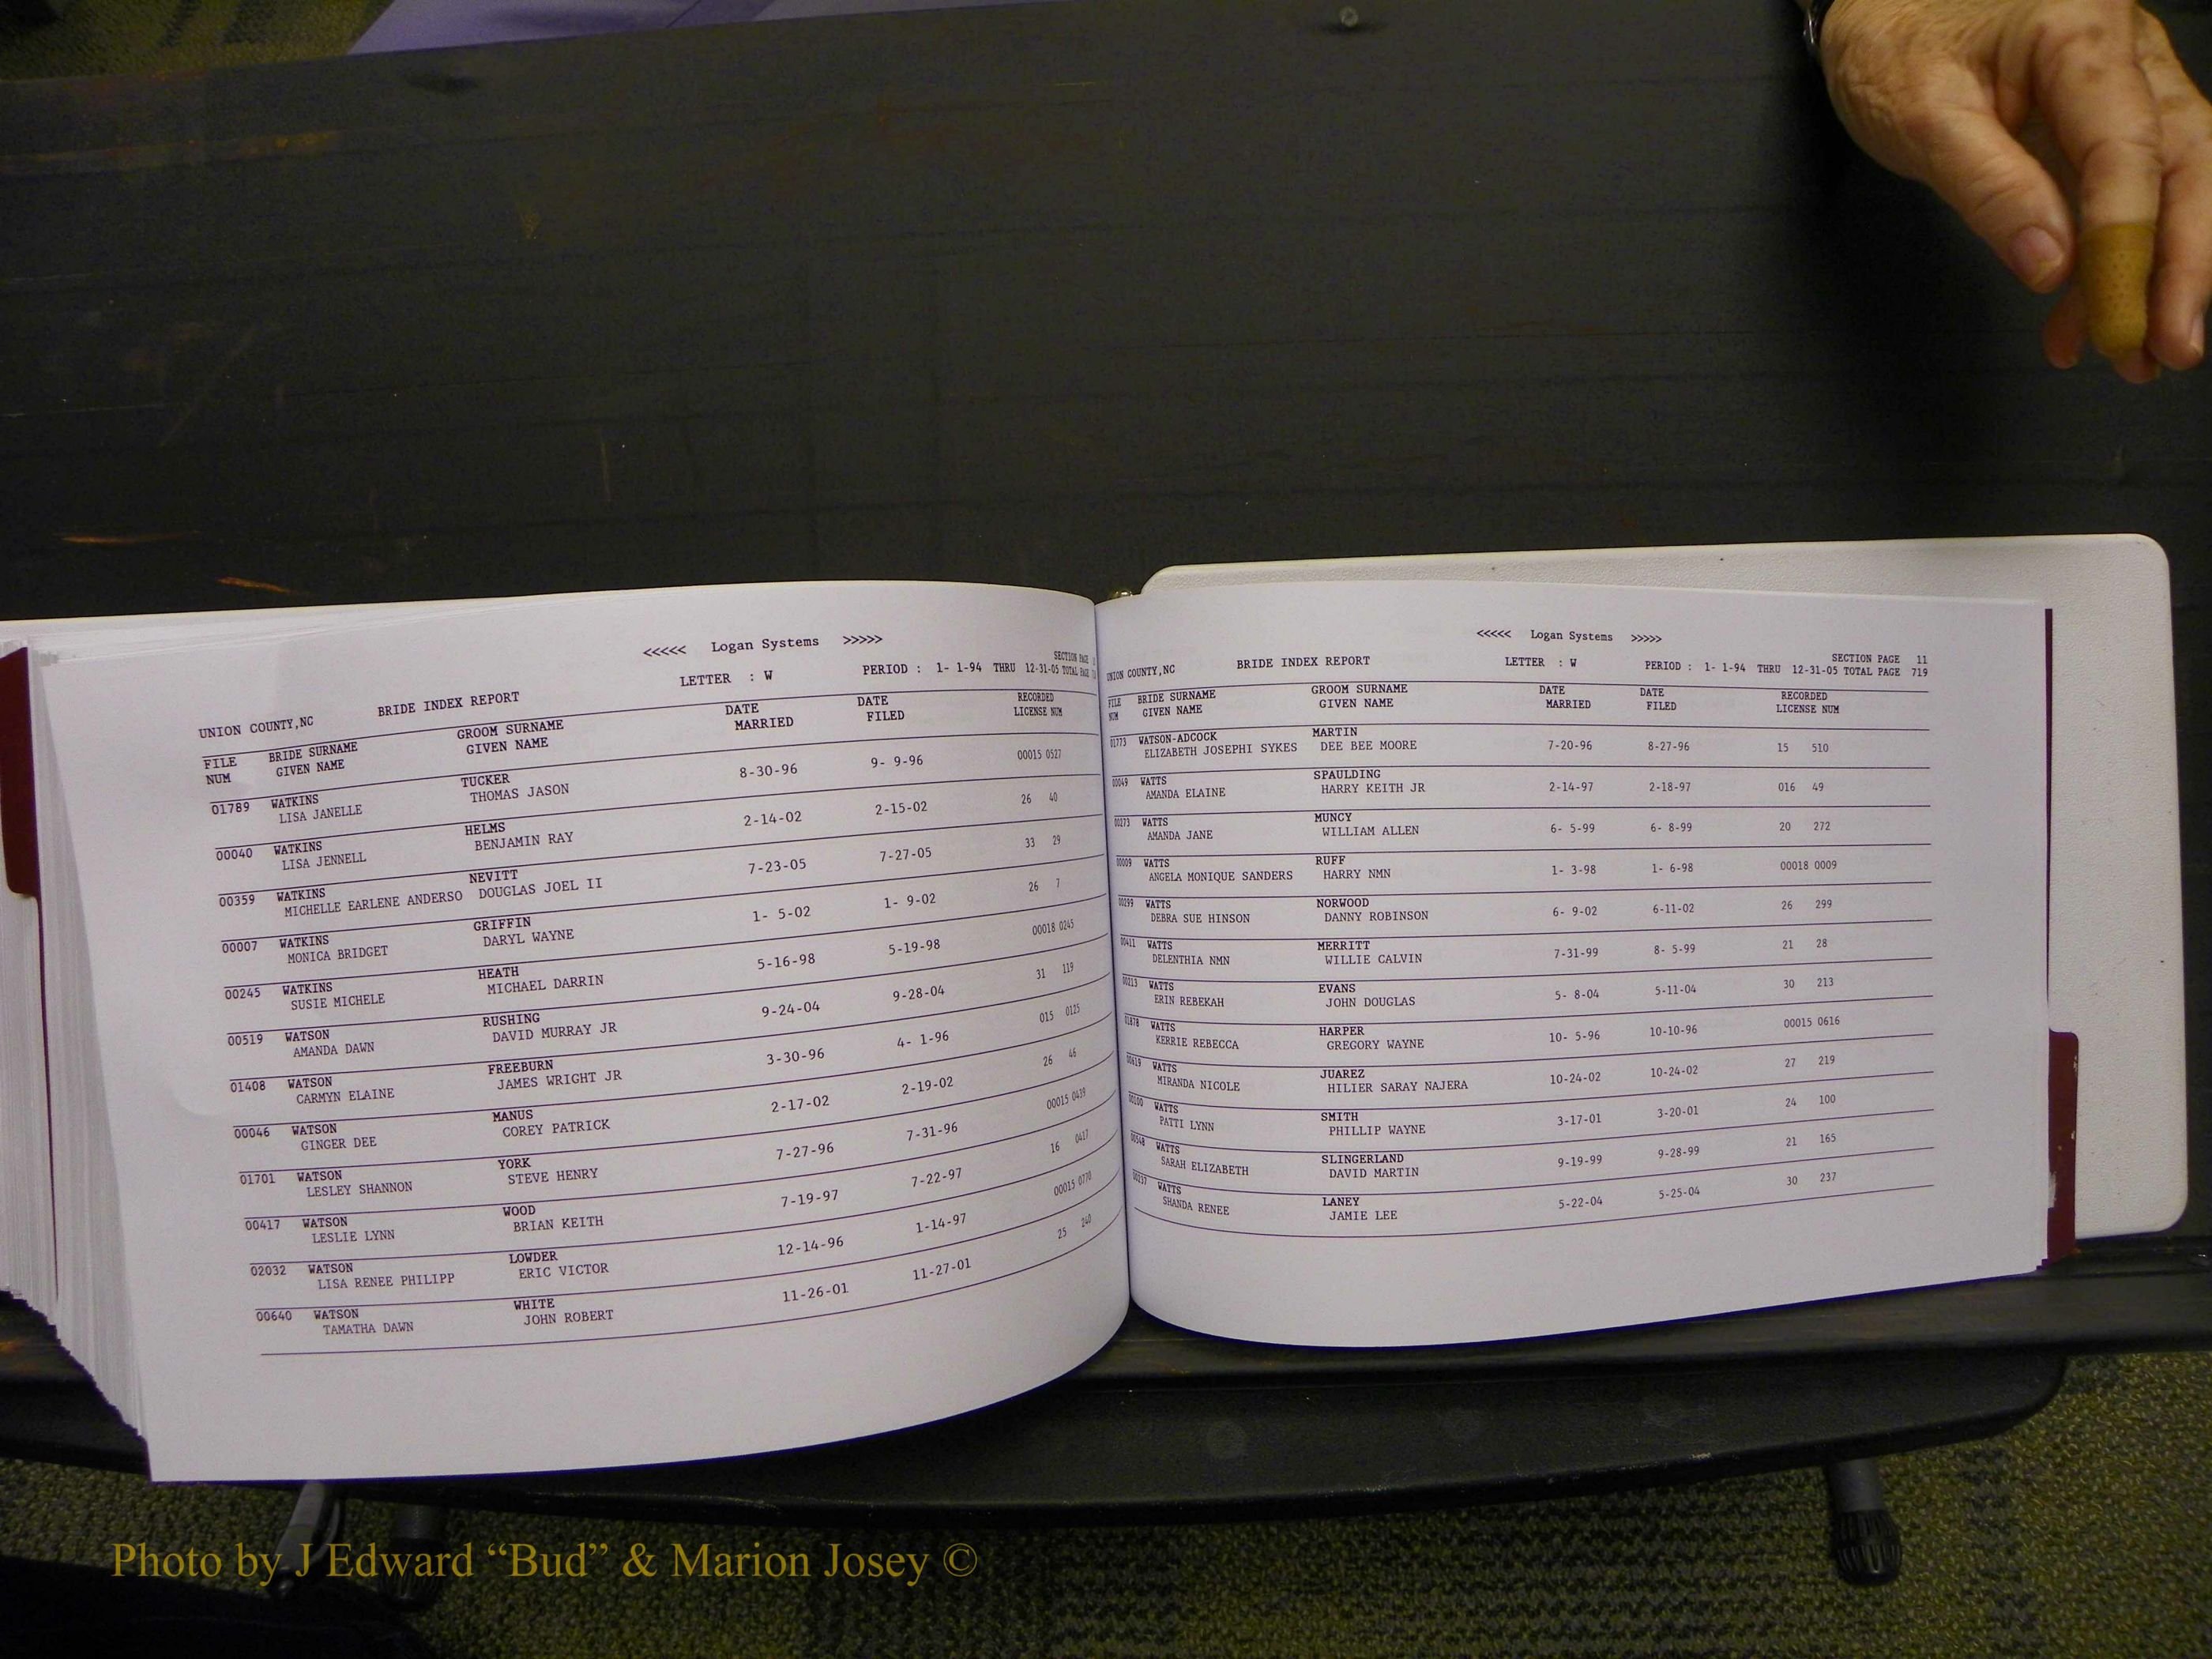 <<<<< Logan Systems >>>>>
SECTION PAGE
UNION COUNTY,NC BRIDE INDEX REPORT LETTER : W PERIOD : 1- 1-94 THRU 12-31-05 TOTAL PAGE
FILE BRIDE SURNAME GROOM SURNAME DATE DATE RECORDED
NUM GIVEN NAME GIVEN NAME MARRIED FILED LICENSE NUM
01789 WATKINS TUCKER 8-30-96 9- 9-96 00015 0527
LISA JANELLE THOMAS JASON
00040 WATKINS HELMS 2-14-02 2-15-02 26 40
LISA JENNELL BENJAMIN RAY
00359 WATKINS NEVITT 7-23-05 7-27-05 33 29
MICHELLE EARLENE ANDERSO DOUGLAS JOEL II
00007 WATKINS GRIFFIN 1- 5-02 1- 9-02 26 7
MONICA BRIDGET DARYL WAYNE
00245 WATKINS HEATH 5-16-98 5-19-98 00018 0245
SUSIE MICHELE MICHAEL DARRIN
00519 WATSON RUSHING 9-24-04 9-28-04 31 119
AMANDA DAWN DAVID MURRAY JR
01408 WATSON FREEBURN 3-30-96 4- 1-96 015 0125
CARMYN ELAINE JAMES WRIGHT JR
00046 WATSON MANUS 2-17-02 2-19-02 26 46
GINGER DEE COREY PATRICK
01701 WATSON YORK 7-27-96 7-31-96 00015 0439
LESLEY SHANNON STEVE HENRY
00417 WATSON WOOD 7-19-97 7-22-97 16 0417
LESLIE LYNN BRIAN KEITH
02032 WATSON LOWDER 12-14-96 1-14-97 00015 0770
LISA RENEE PHILIPP ERIC VICTOR
00640 WATSON WHITE 11-26-01 11-27-01 25 240
TAMATHA DAWN JOHN ROBERT
<<<<< Logan Systems >>>>>
SECTION PAGE 11
UNION COUNTY,NC BRIDE INDEX REPORT LETTER : W PERIOD : 1- 1-94 THRU 12-31-05 TOTAL PAGE 719
FILE BRIDE SURNAME GROOM SURNAME DATE DATE RECORDED
NUM GIVEN NAME GIVEN NAME MARRIED FILED LICENSE NUM
01773 WATSON-ADCOCK MARTIN 7-20-96 8-27-96 15 510
ELIZABETH JOSEPHI SYKES DEE BEE MOORE
00049 WATTS SPAULDING 2-14-97 2-18-97 016 49
AMANDA ELAINE HARRY KEITH JR
00273 WATTS MUNCY 6- 5-99 6- 8-99 20 272
AMANDA JANE WILLIAM ALLEN
00009 WATTS RUFF 1- 3-98 1- 6-98 00018 0009
ANGELA MONIQUE SANDERS HARRY NMN
00299 WATTS NORWOOD 6- 9-02 6-11-02 26 299
DEBRA SUE HINSON DANNY ROBINSON
00411 WATTS MERRITT 7-31-99 8- 5-99 21 28
DELENTHIA NMN WILLIE CALVIN
00213 WATTS EVANS 5- 8-04 5-11-04 30 213
ERIN REBEKAH JOHN DOUGLAS
01878 WATTS HARPER 10- 5-96 10-10-96 00015 0616
KERRIE REBECCA GREGORY WAYNE
00619 WATTS JUAREZ 10-24-02 10-24-02 27 219
MIRANDA NICOLE HILIER SARAY NAJERA
00100 WATTS SMITH 3-17-01 3-20-01 24 100
PATTI LYNN PHILLIP WAYNE
00548 WATTS SLINGERLAND 9-19-99 9-28-99 21 165
SARAH ELIZABETH DAVID MARTIN
00237 WATTS LANEY 5-22-04 5-25-04 30 237
SHANDA RENEE JAMIE LEE
Photo by J Edward “Bud” & Marion Josey ©